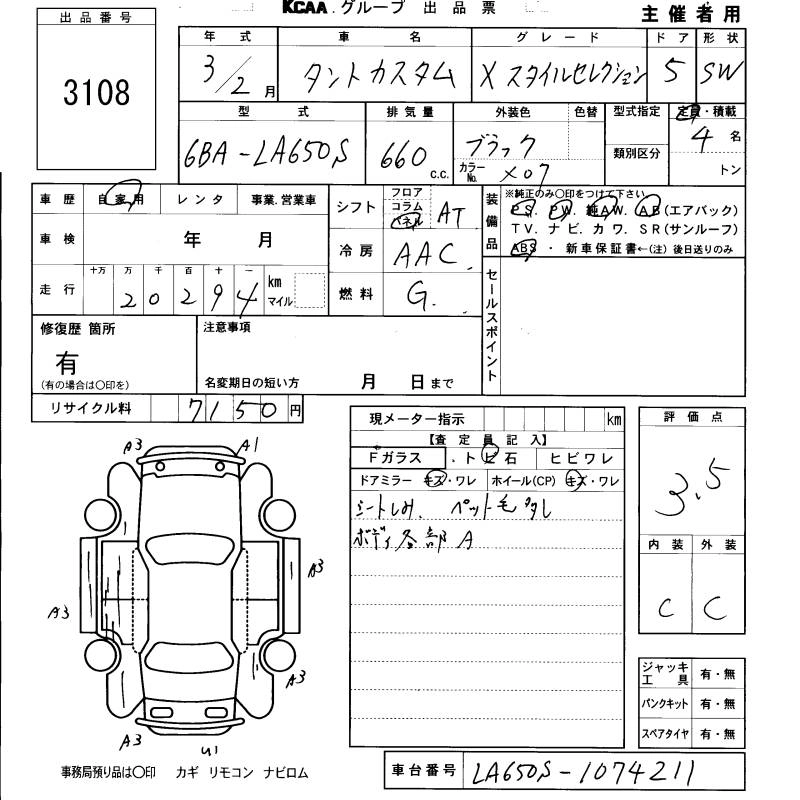 KCAA.グループ 出品票
主催者用
出品番号
3108
年式 車名 グレード ドア 形状
3/2月 タントカスタム X スタイルセレクション 5 SW
型式 排気量 外装色 色替 型式指定 定員・積載
6BA-LA650S 660 c.c. ブラック カラーNo. X07 類別区分 4名 トン
車歴 自家用 レンタ 事業.営業車
車検 年 月
走行 十万 万 千 百 十 一 km マイル
20294
シフト フロア コラム パネル AT
冷房 AAC
燃料 G.
装備品 ※純正のみ○印をつけて下さい
PS. PW. 純AW. AB(エアバック)
TV. ナビ. カワ. SR(サンルーフ)
ABS ・ 新車保証書←(注)後日送りのみ
セールスポイント
修復歴 箇所 注意事項
有
(有の場合は○印を) 名変期日の短い方 月 日まで
リサイクル料 7150円
現メーター指示 km
【査定員記入】
Fガラス .トビ石 ヒビワレ
ドアミラー キズ・ワレ ホイール(CP) キズ・ワレ
シートしみ. ペット毛
ボディ各部A
評価点
3.5
内装 外装
C C
A3 A1
A3
A3
A3
A3 U1
ジャッキ工具 有・無
パンクキット 有・無
スペアタイヤ 有・無
事務局預り品は○印 カギ リモコン ナビロム
車台番号 LA650S-1074211